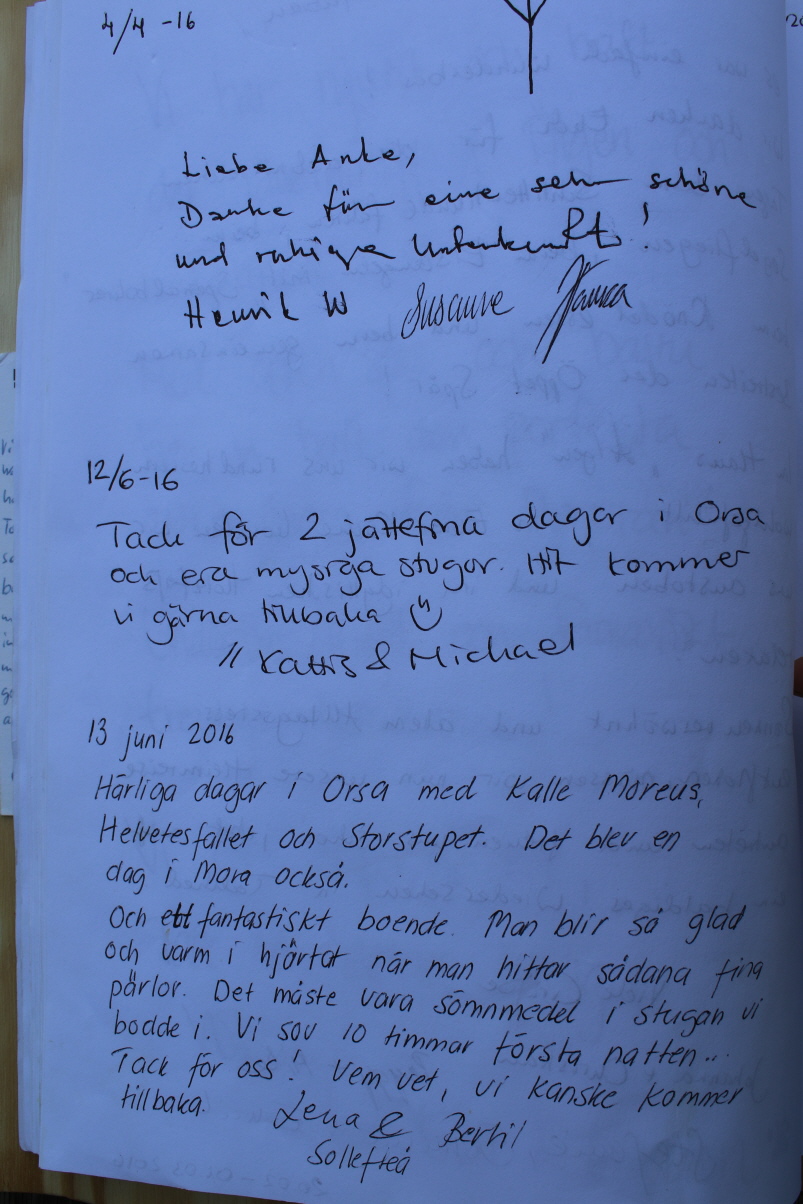 4/4 -16
Liebe Anke,
Danke für eine sehr schöne
und ruhige Unterkunft!
Henrik W Susanne Hanna
12/6-16
Tack för 2 jättefina dagar i Orsa
och era mysiga stugor. Hit kommer
vi gärna tillbaka
// Kattis & Michael
13 juni 2016
Härliga dagar i Orsa med Kalle Moreus,
Helvetesfallet och Storstupet. Det blev en
dag i Mora också.
Och ett fantastiskt boende. Man blir så glad
och varm i hjärtat när man hittar sådana fina
pärlor. Det måste vara sömnmedel i stugan vi
bodde i. Vi sov 10 timmar första natten...
Tack för oss! Vem vet, vi kanske kommer
tillbaka.
Lena & Bertil
Sollefteå